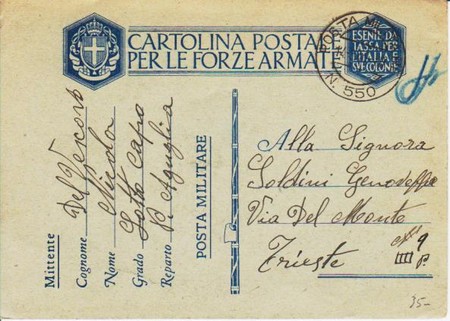 CARTOLINA POSTALE
PER LE FORZE ARMATE
ESENTE DA
TASSA PER
L'ITALIA E
SUE COLONIE
POSTA MIL
N. 550
Mittente
Cognome Del Vescovo
Nome
Grado Sotto Capo
Reparto P. Aquglia
POSTA MILITARE
Alla Signora
Soldini Genoveffa
Via Del Monte
Nº 9
Trieste IIII P.
35-